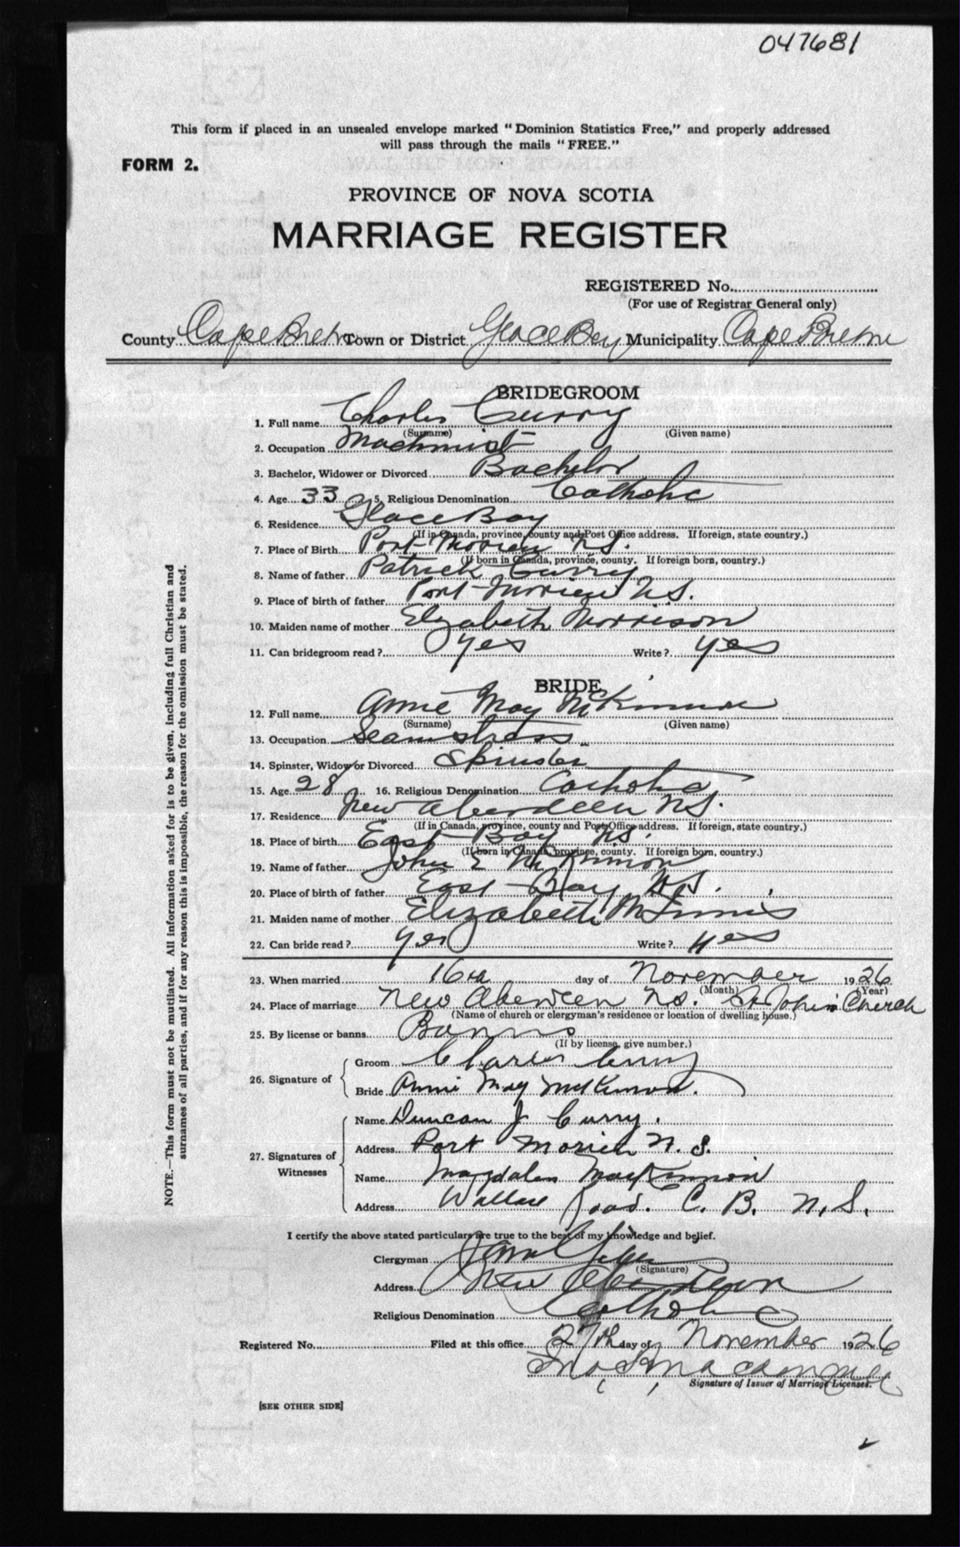 047681
This form if placed in an unsealed envelope marked "Dominion Statistics Free," and properly addressed
will pass through the mails "FREE."
FORM 2.
PROVINCE OF NOVA SCOTIA
MARRIAGE REGISTER
REGISTERED No.
(For use of Registrar General only)
County Cape Breton Town or District Glace Bay Municipality Cape Breton
BRIDEGROOM
1. Full name Charles Curry
(Surname) (Given name)
2. Occupation Machinist
3. Bachelor, Widower or Divorced Bachelor
4. Age 33 5. Religious Denomination Catholic
6. Residence Glace Bay
(If in Canada, province, county and Post Office address. If foreign, state country.)
7. Place of Birth Port Morien N.S.
(If born in Canada, province, county. If foreign born, country.)
8. Name of father Patrick Curry
9. Place of birth of father Port Morien N.S.
10. Maiden name of mother Elizabeth Morrison
11. Can bridegroom read? Yes Write? Yes
BRIDE
12. Full name Annie May McKinnon
(Surname) (Given name)
13. Occupation Seamstress
14. Spinster, Widow or Divorced Spinster
15. Age 28 16. Religious Denomination Catholic
17. Residence New Aberdeen N.S.
(If in Canada, province, county and Post Office address. If foreign, state country.)
18. Place of birth East Bay N.S.
(If born in Canada, province, county. If foreign born, country.)
19. Name of father John McKinnon
20. Place of birth of father East Bay N.S.
21. Maiden name of mother Elizabeth McInnis
22. Can bride read? Yes Write? Yes
23. When married 16th day of November 1926
(Month) (Year)
24. Place of marriage New Aberdeen N.S. St. John's Church
(Name of church or clergyman's residence or location of dwelling house.)
25. By license or banns Banns
(If by license, give number.)
26. Signature of
Groom Charles Curry
Bride Annie May McKinnon.
27. Signatures of Witnesses
Name Duncan J Curry.
Address Port Morien N.S.
Name Magdalen MacKinnon
Address Wallace Road. C. B. N.S.
I certify the above stated particulars are true to the best of my knowledge and belief.
Clergyman
(Signature)
Address New Aberdeen
Religious Denomination Catholic
Registered No. Filed at this office 27th day of November 1926
Signature of Issuer of Marriage Licenses.
[SEE OTHER SIDE]
NOTE.—This form must not be mutilated. All information asked for is to be given, including full Christian and
surnames of all parties, and if for any reason this is impossible, the reason for the omission must be stated.